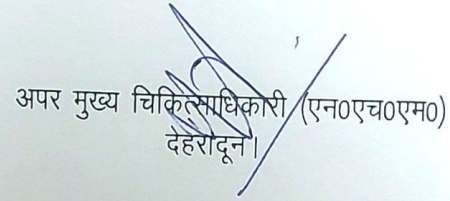 अपर मुख्य चिकित्साधिकारी (एन0एच0एम0)
देहरादून।